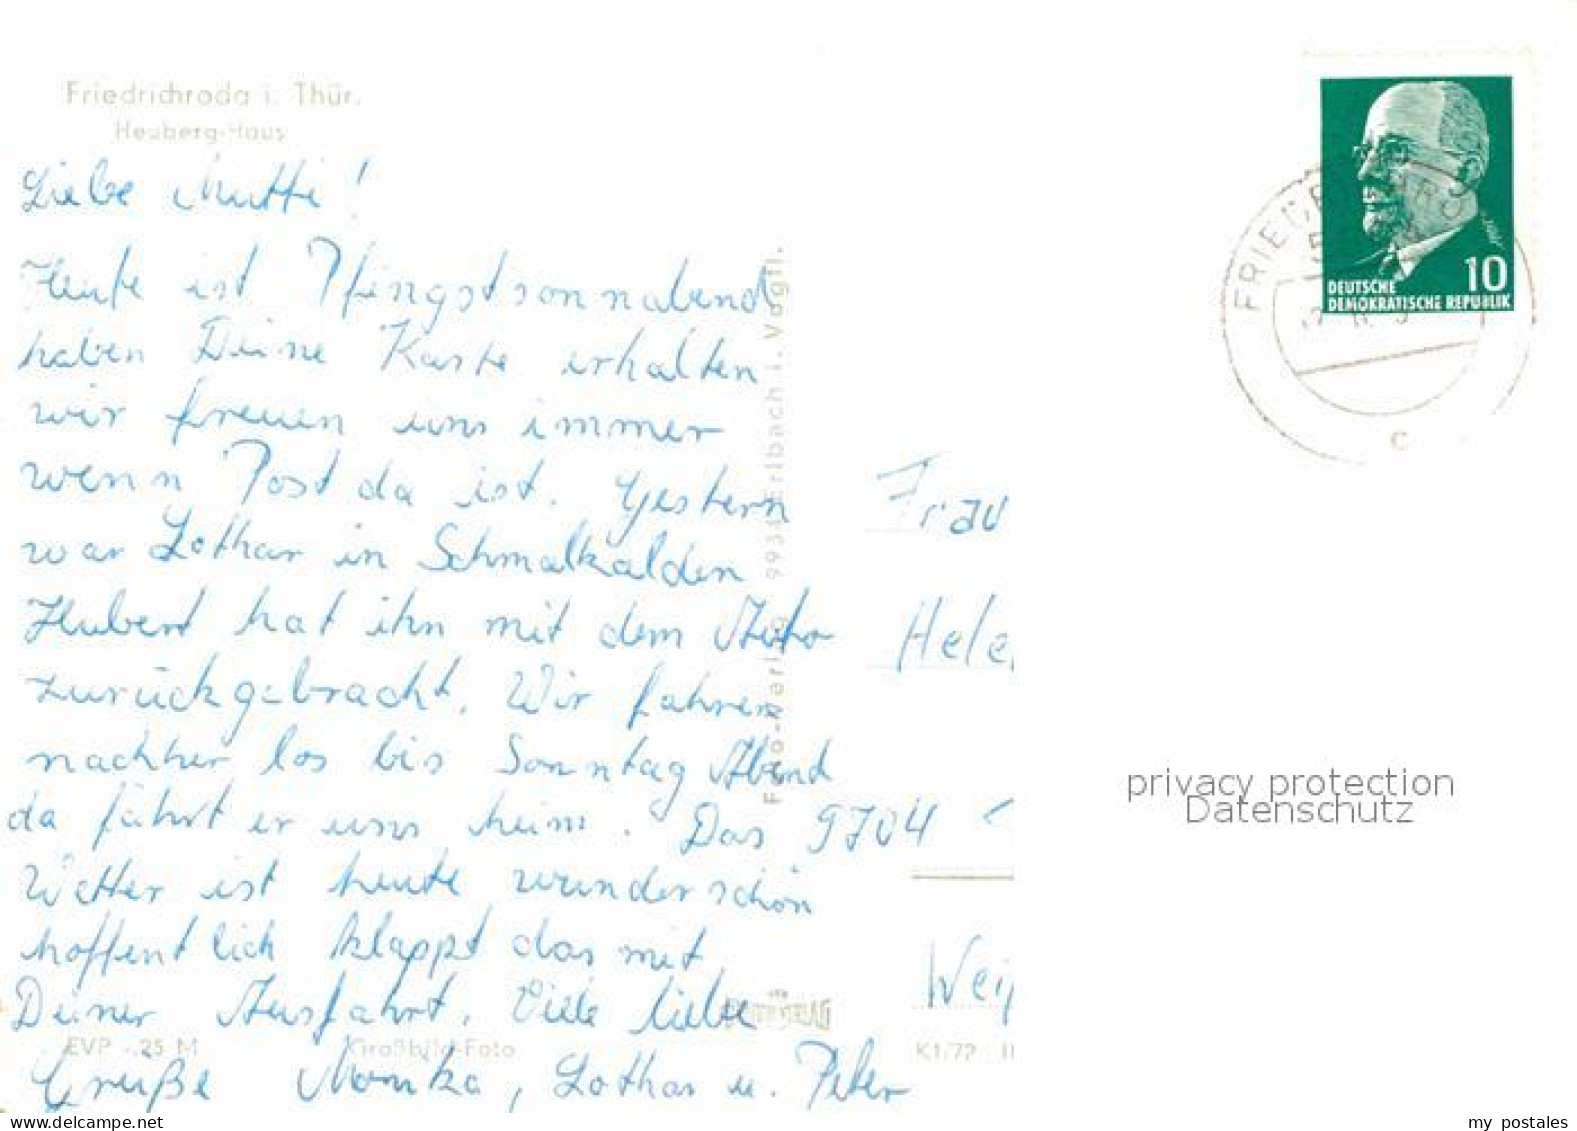 Friedrichroda i. Thür.
Heuberg-Haus
Liebe Mutti!
Heute ist Pfingstsonnabend
haben Deine Karte erhalten
wir freuen uns immer
wenn Post da ist. Gestern
war Lothar in Schmalkalden
Hubert hat ihn mit dem Auto
zurückgebracht. Wir fahren
nachher los bis Sonntag Abend
da fährt er uns heim. Das
Wetter ist heute wunderschön
hoffentlich klappt das mit
Deiner Ausfahrt. Viele liebe
Grüße Monika, Lothar u. Peter
EVP -.25 M
Großbild-Foto
Erlbach i. Vogtl.
K1/72
Frau
9704
10
DEUTSCHE
DEMOKRATISCHE REPUBLIK
c
privacy protection
Datenschutz
www.delcampe.net
my_postales